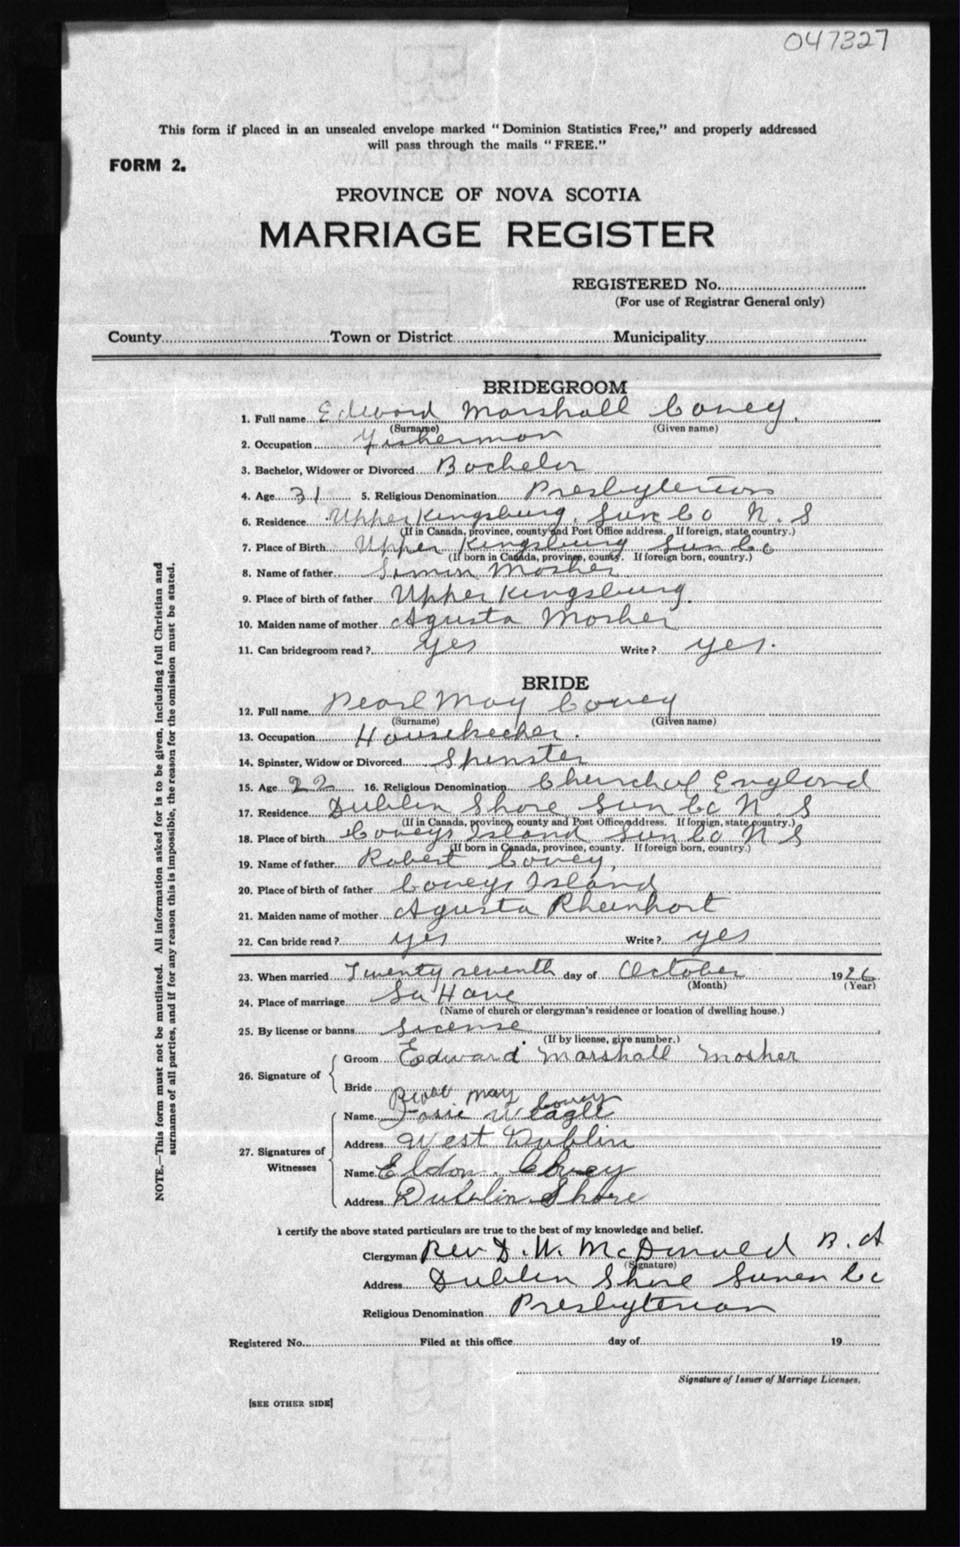 047327
This form if placed in an unsealed envelope marked "Dominion Statistics Free," and properly addressed
will pass through the mails "FREE."
FORM 2.
PROVINCE OF NOVA SCOTIA
MARRIAGE REGISTER
REGISTERED No.
(For use of Registrar General only)
County Town or District Municipality
BRIDEGROOM
1. Full name Edward Marshall Covey.
(Surname) (Given name)
2. Occupation Fisherman
3. Bachelor, Widower or Divorced Bachelor
4. Age 31 5. Religious Denomination Presbyterian
6. Residence Upper Kingsburg, Lun Co N.S
(If in Canada, province, county and Post Office address. If foreign, state country.)
7. Place of Birth Upper Kingsburg Lun Co
(If born in Canada, province, county. If foreign born, country.)
8. Name of father Simin Mosher
9. Place of birth of father Upper Kingsburg.
10. Maiden name of mother Agusta Mosher
11. Can bridegroom read? yes Write? yes.
BRIDE
12. Full name Pearl May Covey
(Surname) (Given name)
13. Occupation Housekeeper.
14. Spinster, Widow or Divorced Spinster
15. Age 22 16. Religious Denomination Church of England
17. Residence Dublin Shore Lun Co N.S
(If in Canada, province, county and Post Office address. If foreign, state country.)
18. Place of birth Coveys Island Lun Co N S
(If born in Canada, province, county. If foreign born, country.)
19. Name of father Robert Covey,
20. Place of birth of father Coveys Island
21. Maiden name of mother Agusta Rheinhart
22. Can bride read? yes Write? yes
23. When married Twenty seventh day of October 1926
(Month) (Year)
24. Place of marriage La Have
(Name of church or clergyman's residence or location of dwelling house.)
25. By license or banns License
(If by license, give number.)
26. Signature of Groom Edward Marshall Mosher
Bride Pearl May Covey
27. Signatures of Witnesses Name Weagle
Address West Dublin
Name Eldon Covey
Address Dublin Shore
I certify the above stated particulars are true to the best of my knowledge and belief.
Clergyman Rev D. W. McDonald B. A
(Signature)
Address Dublin Shore Lunen Co
Religious Denomination Presbyterian
Registered No. Filed at this office day of 19
Signature of Issuer of Marriage Licenses.
[SEE OTHER SIDE]
NOTE.—This form must not be mutilated. All information asked for is to be given, including full Christian and
surnames of all parties, and if for any reason this is impossible, the reason for the omission must be stated.